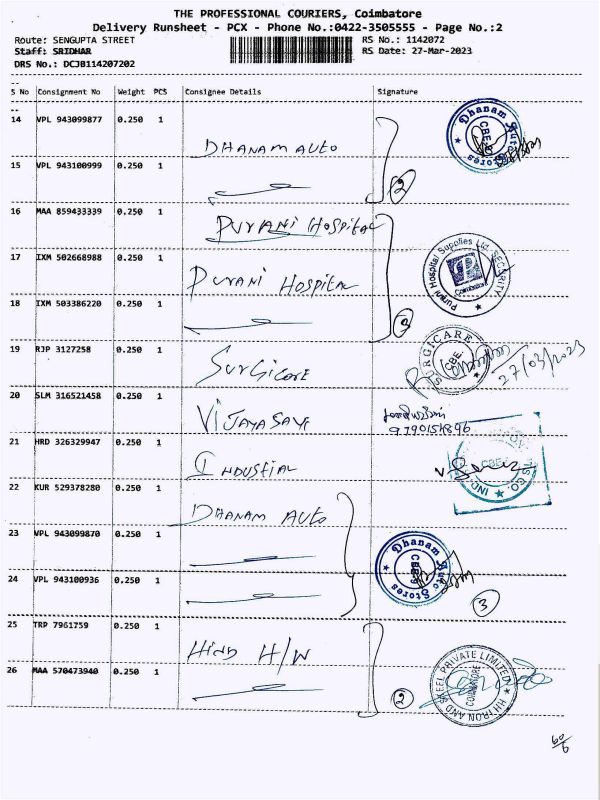 THE PROFESSIONAL COURIERS, Coimbatore
Delivery Runsheet - PCX - Phone No.:0422-3505555 - Page No.:2
Route: SENGUPTA STREET RS No.: 1142072
Staff: SRIDHAR RS Date: 27-Mar-2023
DRS No.: DCJB114207202
S No Consignment No Weight PCS Consignee Details Signature
14 VPL 943099877 0.250 1 DHANAM AUTO
Dhanam Auto Stores CBE-9
15 VPL 943100999 0.250 1 2
16 MAA 859433339 0.250 1 PURANI HOSPITAL
17 IXM 502668988 0.250 1 PURANI HOSPITAL
Purani Hospital Supplies Ltd. SECURITY COIMBATORE
18 IXM 503386220 0.250 1 3
19 RJP 3127258 0.250 1 SURGICORE
SURGICARE CBE 27/03/2023
20 SLM 316521458 0.250 1 VIJAYA SAVE
9790154896
21 HRD 326329947 0.250 1 INDUSTIAL
IND TS CO. CBE
22 KUR 529378280 0.250 1 DHANAM AUTO
23 VPL 943099870 0.250 1
Dhanam Auto Stores CBE-9
24 VPL 943100936 0.250 1 3
25 TRP 7961759 0.250 1 HIND H/W
26 MAA 570473940 0.250 1 2
HH IRON AND STEEL PRIVATE LIMITED COIMBATORE
60/6